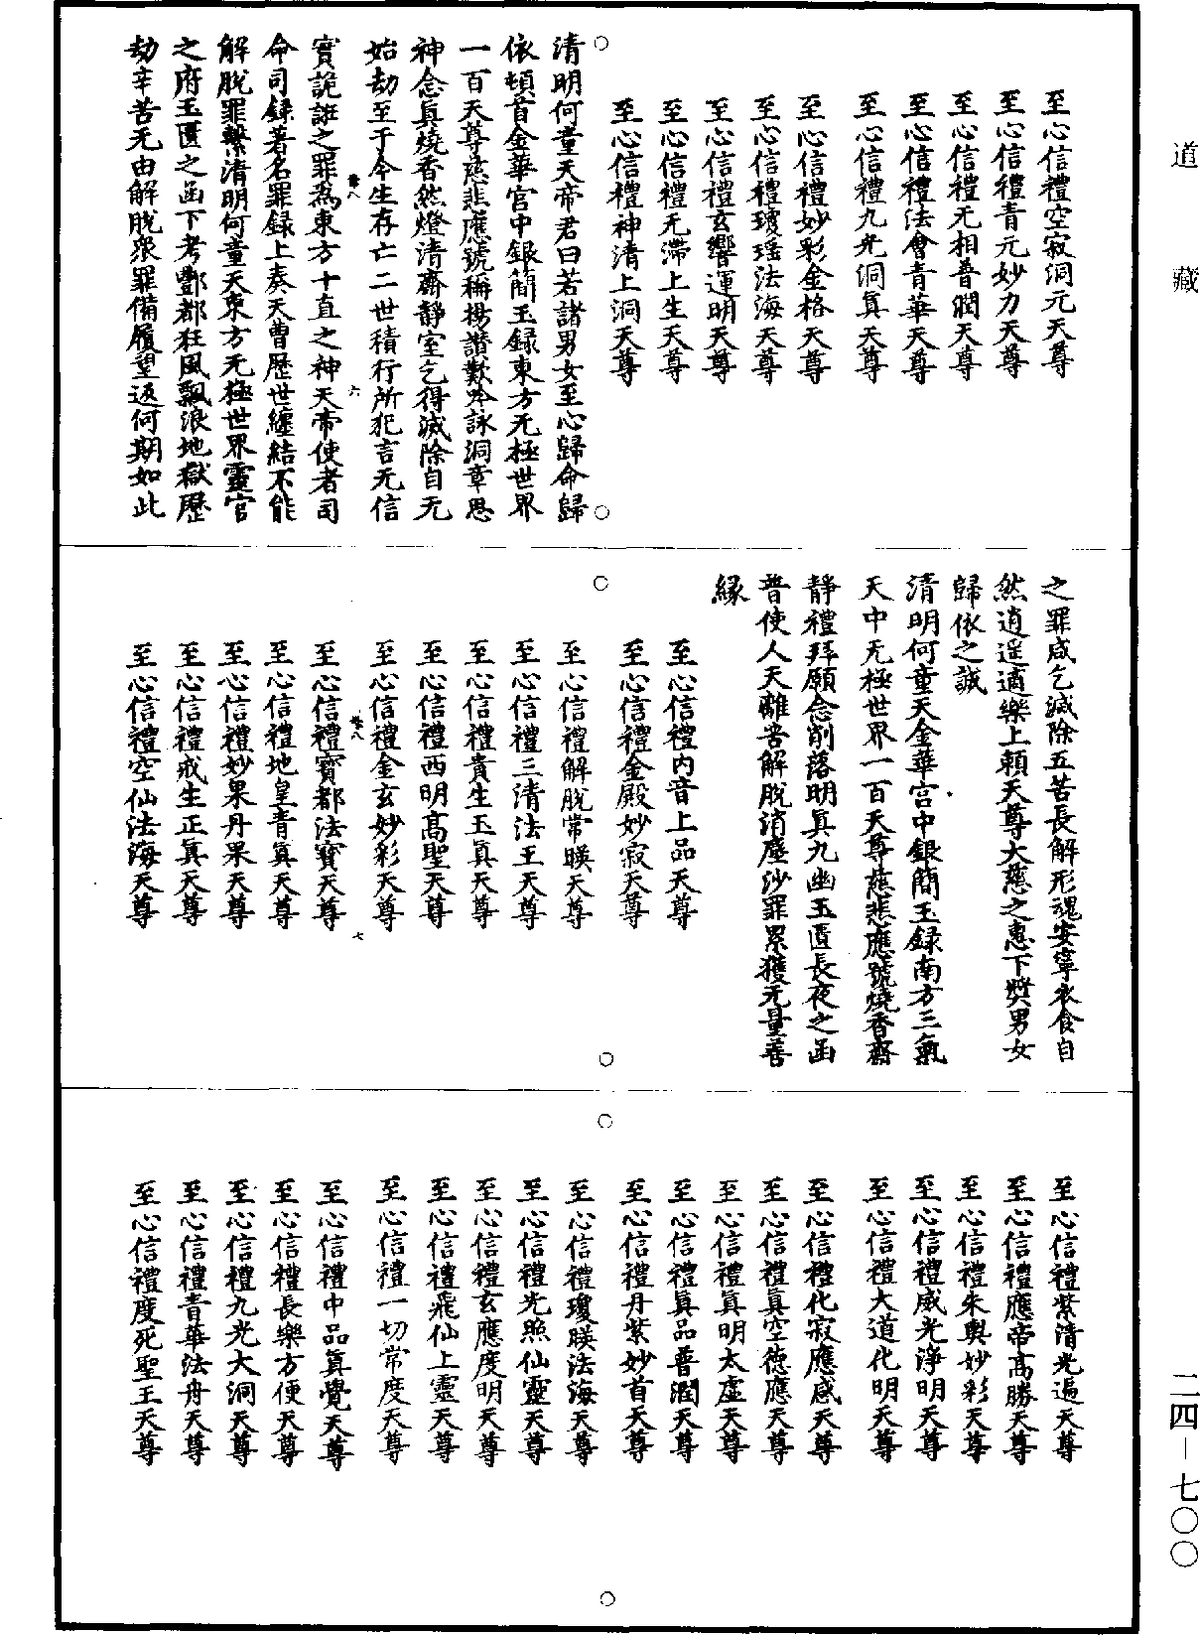 道藏
至心信禮空寂洞元天尊
至心信禮青元妙力天尊
至心信禮无相普潤天尊
至心信禮法會青華天尊
至心信禮九光洞眞天尊
至心信禮妙彩金格天尊
至心信禮瓊瑤法海天尊
至心信禮玄響運明天尊
至心信禮无滯上生天尊
至心信禮神清上洞天尊
清明何童天帝君曰若諸男女至心歸命歸
依頓首金華宮中銀簡玉録東方无極世界
一百天尊慈悲應號稱揚讃歎吟詠洞章思
神念眞燒香然燈清齋靜室乞得滅除自无
始劫至于今生存亡二世積行所犯言无信
實詭誑之罪爲東方十直之神天帝使者司
命司録著名罪録上奏天曹歷世纏結不能
解脫罪繫清明何童天東方无極世界靈官
之府玉匱之函下考酆都狂風飄浪地獄歷
劫辛苦无由解脫衆罪備履望返何期如此
卷八
六
之罪咸乞滅除五苦長解形魂安寧衣食自
然逍遥適樂上頼天尊大慈之惠下獎男女
歸依之誠
清明何童天金華宮中銀簡玉録南方三氣
天中无極世界一百天尊慈悲應號燒香齋
靜禮拜願念削落明眞九幽玉匱長夜之函
普使人天離苦解脫消塵沙罪累獲无量善
緣
至心信禮内音上品天尊
至心信禮金殿妙寂天尊
至心信禮解脫常暎天尊
至心信禮三清法王天尊
至心信禮貴生玉眞天尊
至心信禮西明高聖天尊
至心信禮金玄妙彩天尊
至心信禮寳都法寳天尊
至心信禮地皇青眞天尊
至心信禮妙果丹果天尊
至心信禮戒生正眞天尊
至心信禮空仙法海天尊
卷八
七
至心信禮紫清光遍天尊
至心信禮應帝高勝天尊
至心信禮朱輿妙彩天尊
至心信禮威光淨明天尊
至心信禮大道化明天尊
至心信禮化寂應感天尊
至心信禮眞空德應天尊
至心信禮眞明太虛天尊
至心信禮眞品普潤天尊
至心信禮丹紫妙首天尊
至心信禮瓊暎法海天尊
至心信禮光照仙靈天尊
至心信禮玄應度明天尊
至心信禮飛仙上靈天尊
至心信禮一切常度天尊
至心信禮中品眞覺天尊
至心信禮長樂方便天尊
至心信禮九光大洞天尊
至心信禮青華法舟天尊
至心信禮度死聖王天尊
二四—七〇〇